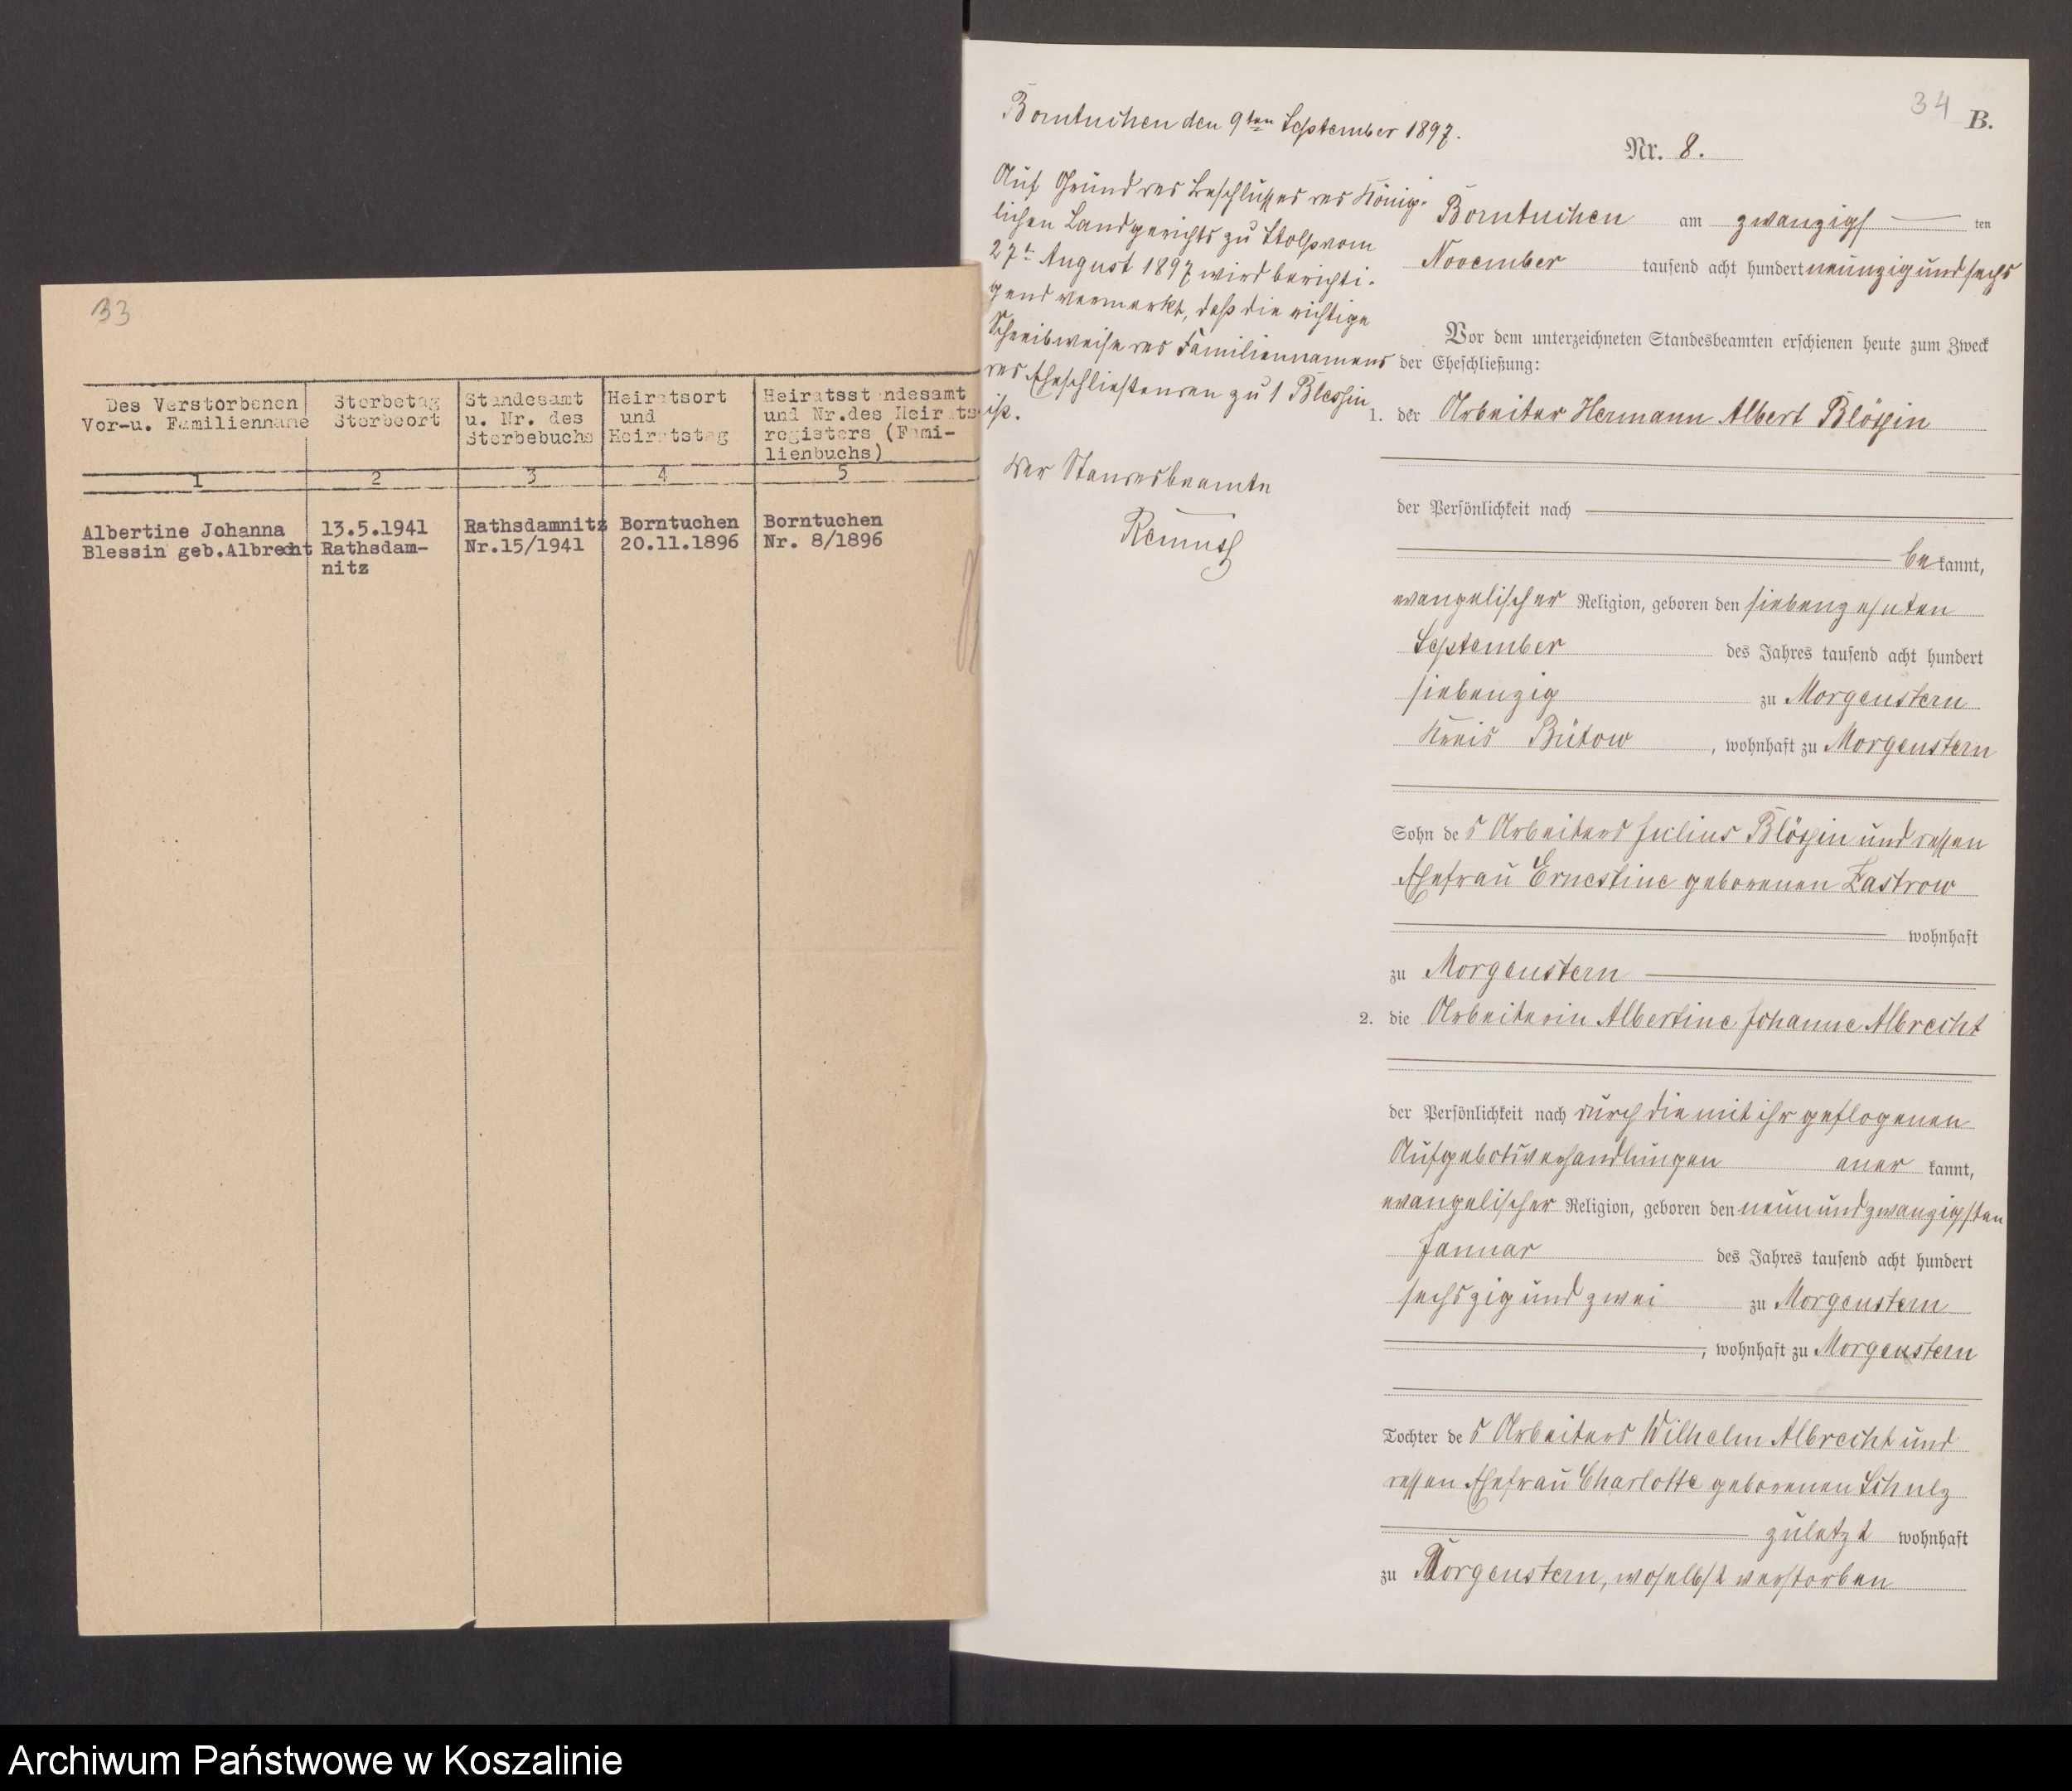 33
Des Verstorbenen
Vor-u. Familienname
Sterbetag
Sterbeort
Standesamt
u. Nr. des
Sterbebuchs
Heiratsort
und
Heiratstag
Heiratsstandesamt
und Nr.des Heirats-
registers (Fami-
lienbuchs)
1 2 3 4 5
Albertine Johanna
Blessin geb.Albrecht
13.5.1941
Rathsdam-
nitz
Rathsdamnitz
Nr.15/1941
Borntuchen
20.11.1896
Borntuchen
Nr. 8/1896
34
B.
Borntuchen den 9ten September 1897.
Auf Grund des Beschlusses des König-
lichen Landgerichts zu Stolp vom
27t August 1897 wird berichti-
gend vermerkt, daß die richtige
Schreibweise des Familiennamens
des Eheschließenden zu 1 Blessin
ist.
Der Standesbeamte
Nr. 8.
Borntuchen am zwanzigs ten
November tausend acht hundert neunzig und sechs
Vor dem unterzeichneten Standesbeamten erschienen heute zum Zweck
der Eheschließung:
1. der Arbeiter Hermann Albert Blössin
der Persönlichkeit nach
be kannt,
evangelischer Religion, geboren den siebenzehnten
September des Jahres tausend acht hundert
siebenzig zu Morgenstern
Kreis Bütow, wohnhaft zu Morgenstern
Sohn des Arbeiters Julius Blössin und dessen
Ehefrau Ernestine geborenen Zastrow
wohnhaft
zu Morgenstern
2. die Arbeiterin Albertine Johanne Albrecht
der Persönlichkeit nach durch die mit ihr geflogenen
Aufgebotsverhandlungen aner kannt,
evangelischer Religion, geboren den neunundzwanzigsten
Januar des Jahres tausend acht hundert
sechszig und zwei zu Morgenstern
, wohnhaft zu Morgenstern
Tochter des Arbeiters Wilhelm Albrecht und
dessen Ehefrau Charlotte geborenen Schulz
zuletzt wohnhaft
zu Morgenstern, woselbst verstorben
Archiwum Państwowe w Koszalinie